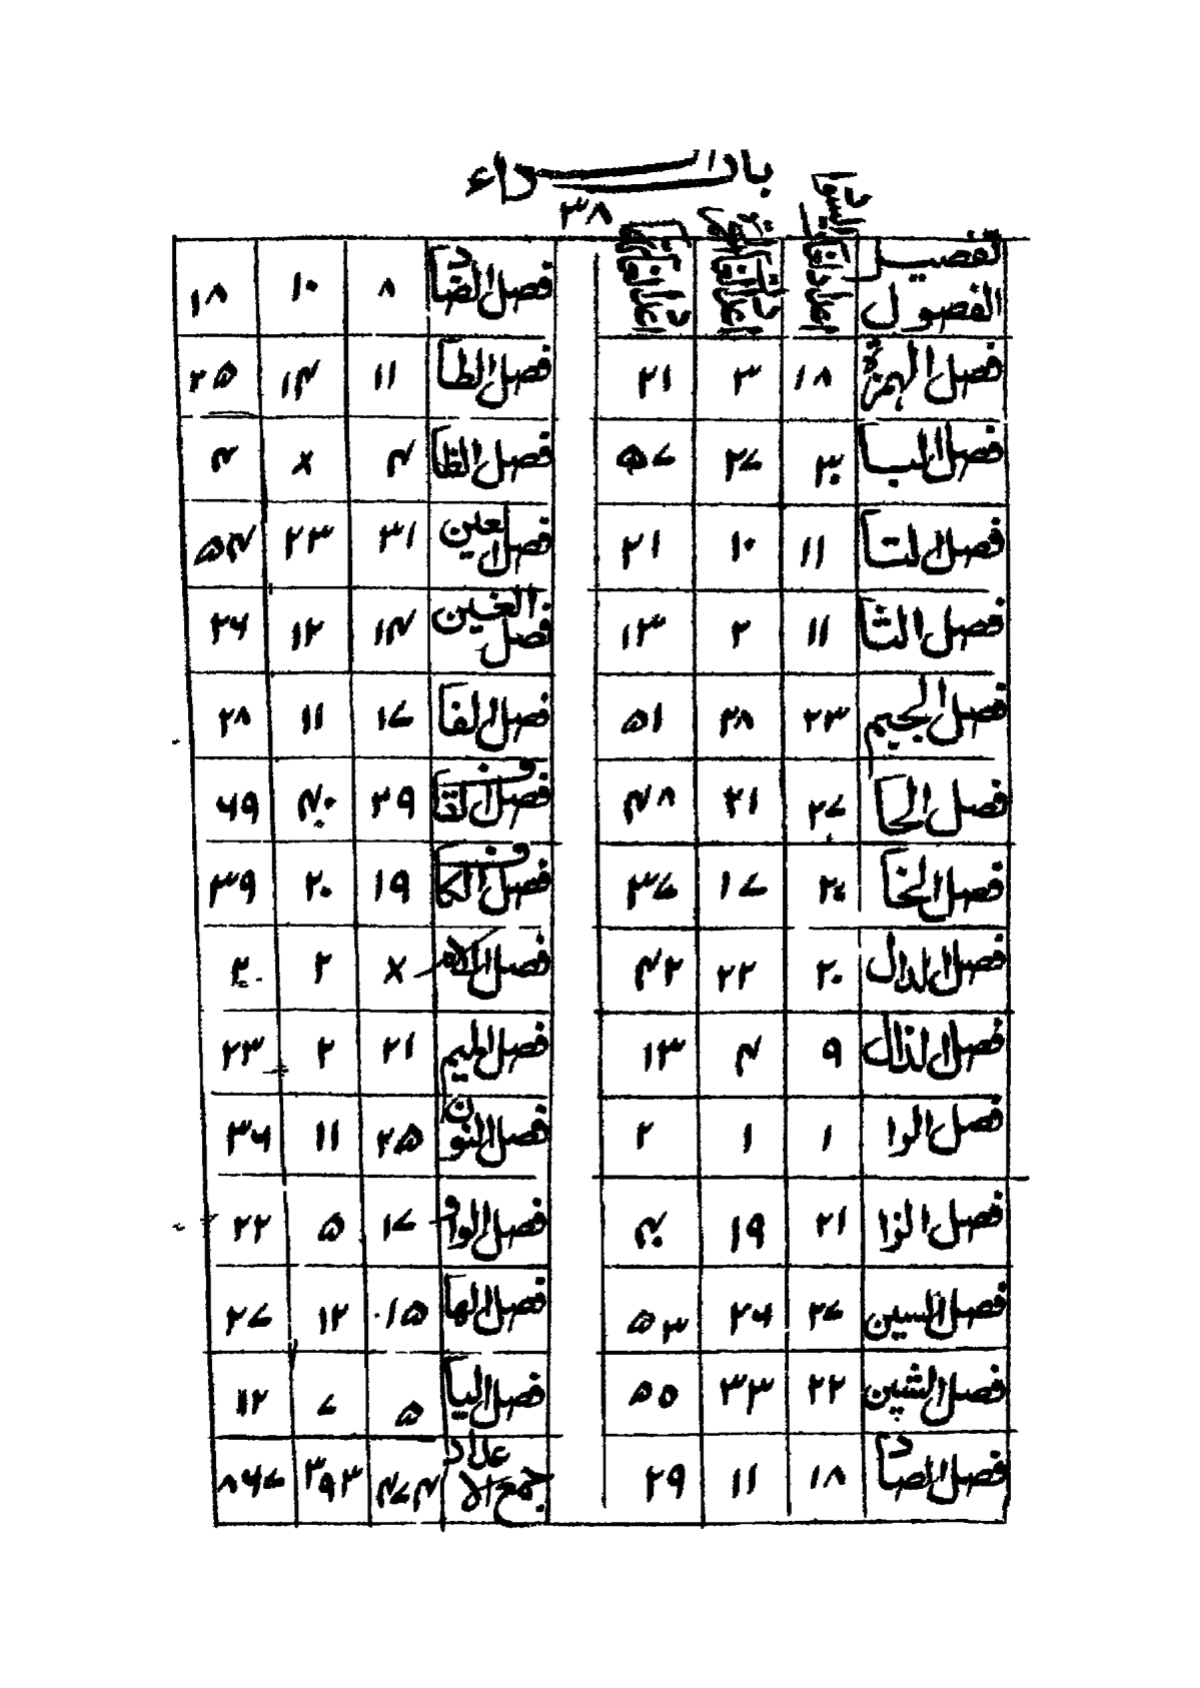 باب الراء
٣٨
تفصيل الفصول
فصل الهمزة ١٨ ٣ ٢١
فصل البا ٣٠ ٢٧ ٥٧
فصل التا ١١ ١٠ ٢١
فصل الثا ١١ ٢ ١٣
فصل الجيم ٢٣ ٢٨ ٥١
فصل الحا ٢٧ ٢١ ٤٨
فصل الخا ٢٠ ١٧ ٣٧
فصل الدال ٢٠ ٢٢ ٤٢
فصل الذال ٩ ٤ ١٣
فصل الرا ١ ١ ٢
فصل الزا ٢١ ١٩ ٤٠
فصل السين ٢٧ ٢٦ ٥٣
فصل الشين ٢٢ ٣٣ ٥٥
فصل الصاد ١٨ ١١ ٢٩
فصل الضاد ٨ ١٠ ١٨
فصل الطا ١١ ١٤ ٢٥
فصل الظا ٤ × ٤
فصل العين ٣١ ٢٣ ٥٤
فصل الغين ١٤ ١٢ ٢٦
فصل الفا ١٧ ١١ ٢٨
فصل القاف ٢٩ ٤٠ ٦٩
فصل الكاف ١٩ ٢٠ ٣٩
فصل اللام × ٢ ٢
فصل الميم ٢١ ٢ ٢٣
فصل النون ٢٥ ١١ ٣٦
فصل الواو ١٧ ٥ ٢٢
فصل الها ١٥ ١٢ ٢٧
فصل اليا ٥ ٧ ١٢
جمع الاعداد ٤٧٤ ٣٩٣ ٨٦٧